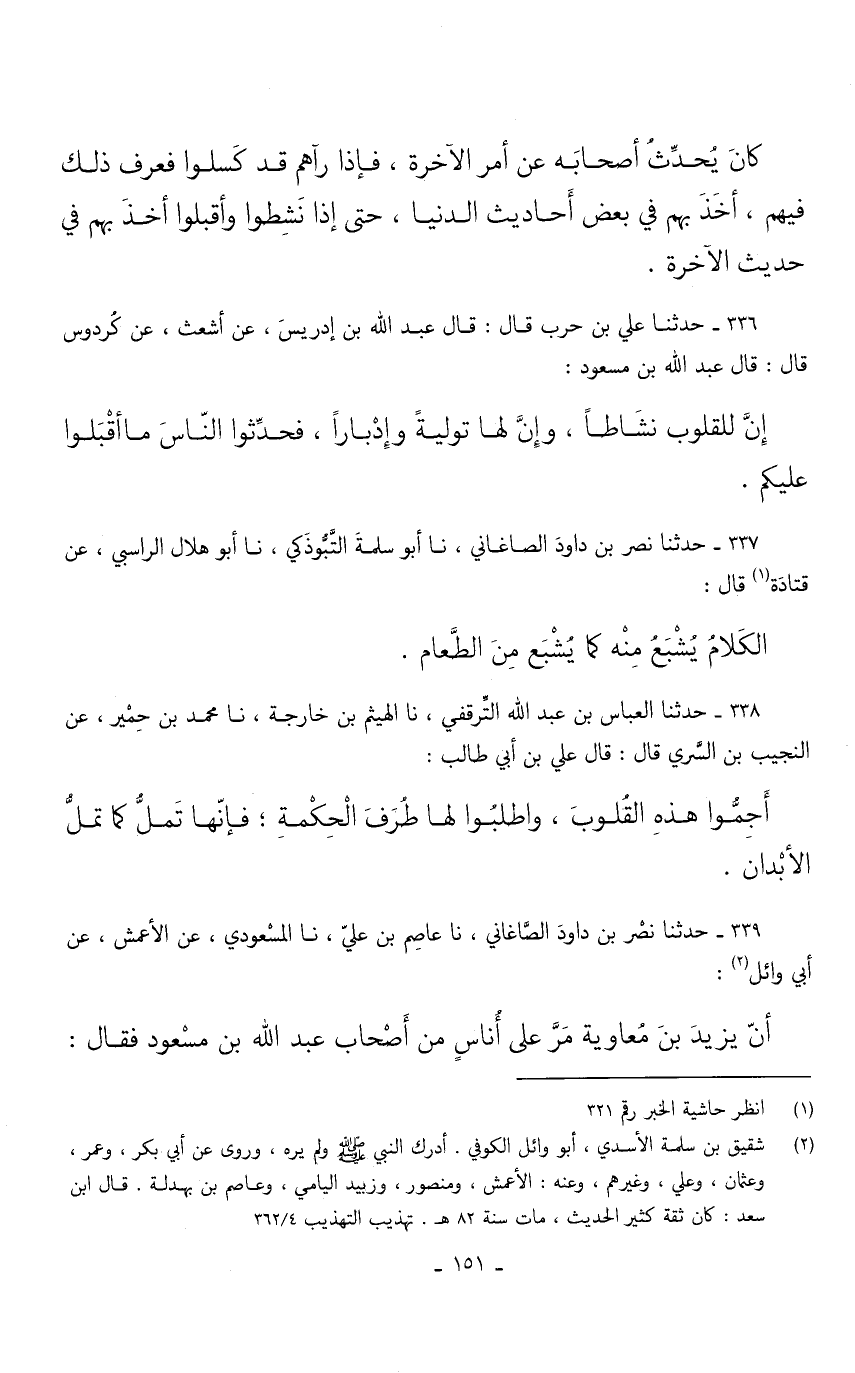 كانَ يُحـدِّثُ أصحـابَـه عن أمر الآخرة ، فـإذا رآهم قـد كَسلـوا فعرف ذلـك
فيهم ، أخَذَ بهم في بعض أَحـاديث الـدنيـا ، حتى إذا نَشِطوا وأقبلوا أخـذَ بهم في
حديث الآخرة .
٣٣٦ ـ حدثنـا علي بن حرب قـال : قـال عبـد الله بن إدريسَ ، عن أشعث ، عن كُردوس
قال : قال عبد الله بن مسعود :
إنَّ للقلوب نشَـاطـاً ، وإنَّ لهـا توليـةً وإدْبـاراً ، فحـدِّثوا النّـاسَ مـاأقْبَلـوا
عليكم .
٣٣٧ ـ حدثنا نصر بن داودَ الصـاغـاني ، نـا أبو سلمـةَ التَّبُّوذَكي ، نـا أبو هلال الراسبي ، عن
قتادَة(١) قال :
الكَلامُ يُشْبَعُ مِنْه كما يُشْبَع مِنَ الطَّعام .
٣٣٨ ـ حدثنا العباس بن عبد الله التِّرقفي ، نا الهيثم بن خارجـة ، نـا محمـد بن حِمْير ، عن
النجيب بن السَّري قال : قال علي بن أبي طالب :
أَجِمُّـوا هـذهِ القُلـوبَ ، واطلبُـوا لهـا طُرَفَ الْحِكْمـةِ ؛ فـإنّهـا تَمـلُّ كما تمـلُّ
الأبْدان .
٣٣٩ ـ حدثنا نصْر بن داودَ الصَّاغاني ، نا عاصِم بن عليّ ، نـا المسْعودي ، عن الأعمش ، عن
أبي وائل(٢) :
أنّ يزيدَ بنَ مُعاوية مَرَّ على أُناسٍ من أَصْحاب عبد الله بن مسْعود فقـال :
(١) انظر حاشية الخبر رقم ٣٢١
(٢) شقيق بن سلمـة الأسـدي ، أبو وائل الكوفي . أدرك النبي ﷺ ولم يره ، وروى عن أبي بكر ، وعمر ،
وعثمان ، وعلي ، وغيرهم ، وعنه : الأعمش ، ومنصور ، وزبيد اليامي ، وعـاصم بن بهـدلـة . قـال ابن
سعد : كان ثقة كثير الحديث ، مات سنة ٨٢ هـ . تهذيب التهذيب ٣٦٢/٤
ـ ١٥١ ـ